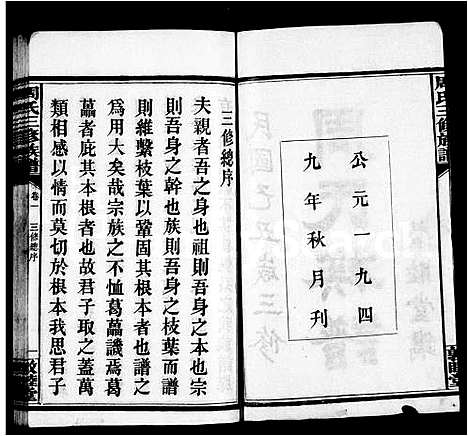 周氏三修族譜
公元一九四
九年秋月刊
三修總序
夫親者吾之身也祖則吾身之本也宗
則吾身之幹也族則吾身之枝葉而譜
則維繫枝葉以鞏固其根本者也譜之
為用大矣哉宗族之不恤葛藟譏焉葛
藟者庇其本根者也故君子取之蓋萬
類相感以情而莫切於根本我思君子
周氏三修族譜
卷一
三修總序
一
敦睦堂